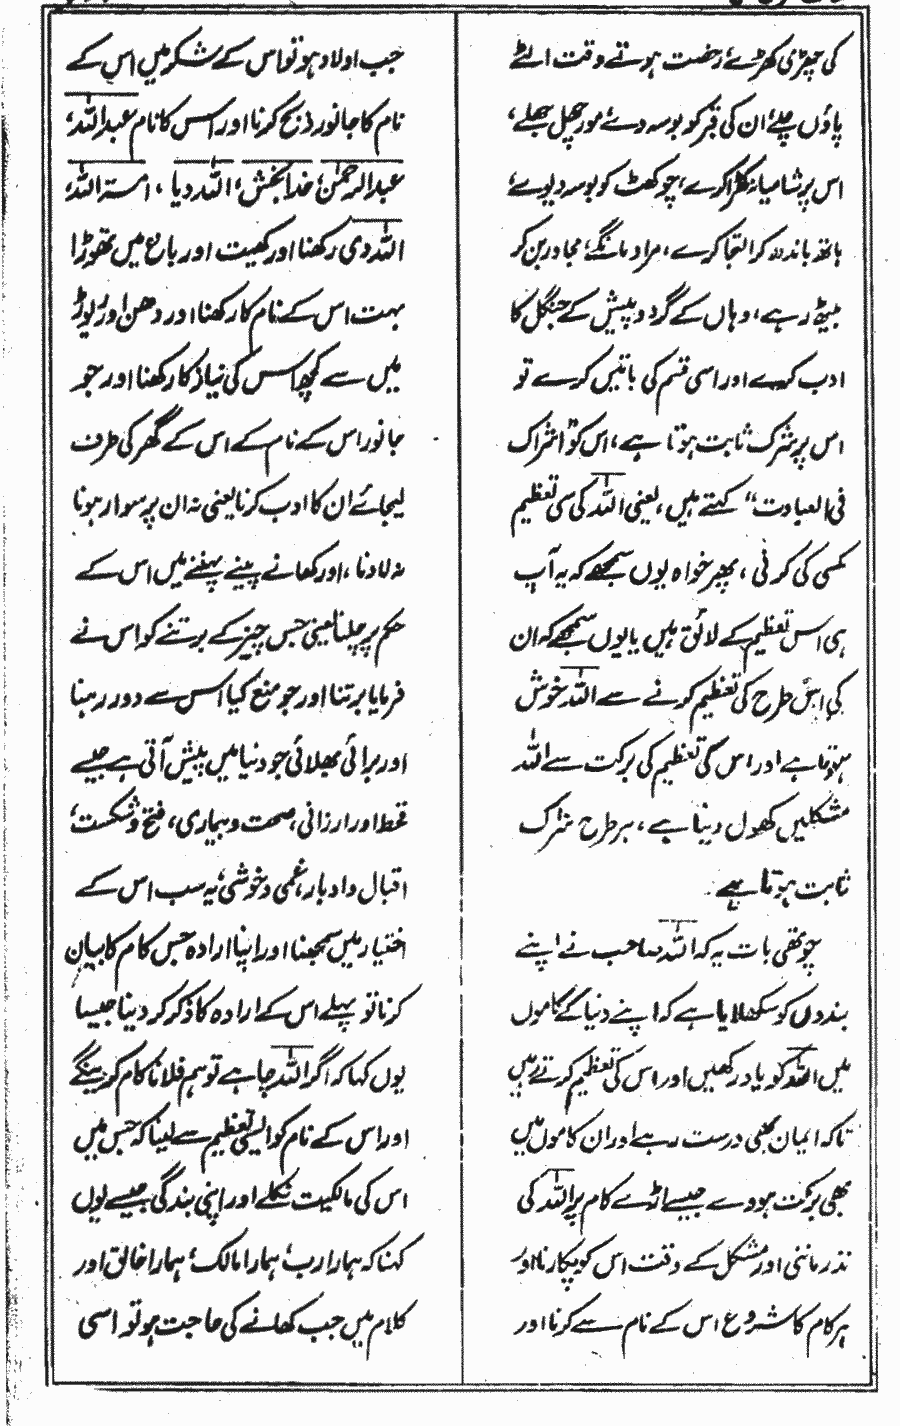 کی چھڑی کھڑے، رخصت ہوتے وقت الٹے
پاؤں چلے، ان کی قبر کو بوسہ دے، مورچھل جھلے،
اس پر شامیانہ کھڑا کرے، چوکھٹ کو بوسہ دیوے،
ہاتھ باندھ کر التجا کرے، مراد مانگے، مجاور بن کر
بیٹھ رہے، وہاں کے گرد و پیش کے جنگل کا
ادب کرے اور اسی قسم کی باتیں کرے تو
اس پر شرک ثابت ہوتا ہے، اس کو "اشراک
فی العبادت" کہتے ہیں، یعنی اللہ کی سی تعظیم
کسی کی کرنی، پھر خواہ یوں سمجھے کہ یہ آپ
ہی اس تعظیم کے لائق ہیں یا یوں سمجھے کہ ان
کی اس طرح کی تعظیم کرنے سے اللہ خوش
ہوتا ہے اور اس کی تعظیم کی برکت سے اللہ
مشکلیں کھول دیتا ہے، ہر طرح شرک
ثابت ہوتا ہے
چوتھی بات یہ کہ اللہ صاحب نے اپنے
بندوں کو سکھلایا ہے کہ اپنے دنیا کے کاموں
میں اللہ کو یاد رکھیں اور اس کی تعظیم کرتے رہیں
تاکہ ایمان بھی درست رہے اور ان کاموں میں
بھی برکت ہووے جیسے اڑے کام پر اللہ کی
نذر ماننی اور مشکل کے وقت اس کو پکارنا اور
ہر کام کا شروع اس کے نام سے کرنا اور
جب اولاد ہو تو اس کے شکر میں اس کے
نام کا جانور ذبح کرنا اور اس کا نام عبداللہ،
عبدالرحمٰن، خدا بخش، اللہ دیا، امۃ اللہ،
اللہ دی رکھنا اور کھیت اور باغ میں تھوڑا
بہت اس کے نام کا رکھنا اور دھن اور ریوڑ
میں سے کچھ اس کی نیاز کا رکھنا اور جو
جانور اس کے نام کے اس کے گھر کی طرف
لیجائے ان کا ادب کرنا یعنی نہ ان پر سوار ہونا
نہ لادنا، اور کھانے پینے پہننے میں اس کے
حکم پر چلنا یعنی جس چیز کے برتنے کو اس نے
فرمایا برتنا اور جو منع کیا اس سے دور رہنا
اور برائی بھلائی جو دنیا میں پیش آتی ہے جیسے
قحط اور ارزانی، صحت و بیماری، فتح و شکست،
اقبال و ادبار، غمی و خوشی، یہ سب اس کے
اختیار میں سمجھنا اور اپنا ارادہ جس کام کا بیان
کرنا تو پہلے اس کے ارادہ کا ذکر کر دینا جیسا
یوں کہا کہ اگر اللہ چاہے تو ہم فلانا کام کرینگے
اور اس کے نام کو ایسی تعظیم سے لینا کہ جس میں
اس کی مالکیت نکلے اور اپنی بندگی جیسے یوں
کہنا کہ ہمارا رب، ہمارا مالک، ہمارا خالق اور
کلام میں جب کھانے کی حاجت ہو تو اسی